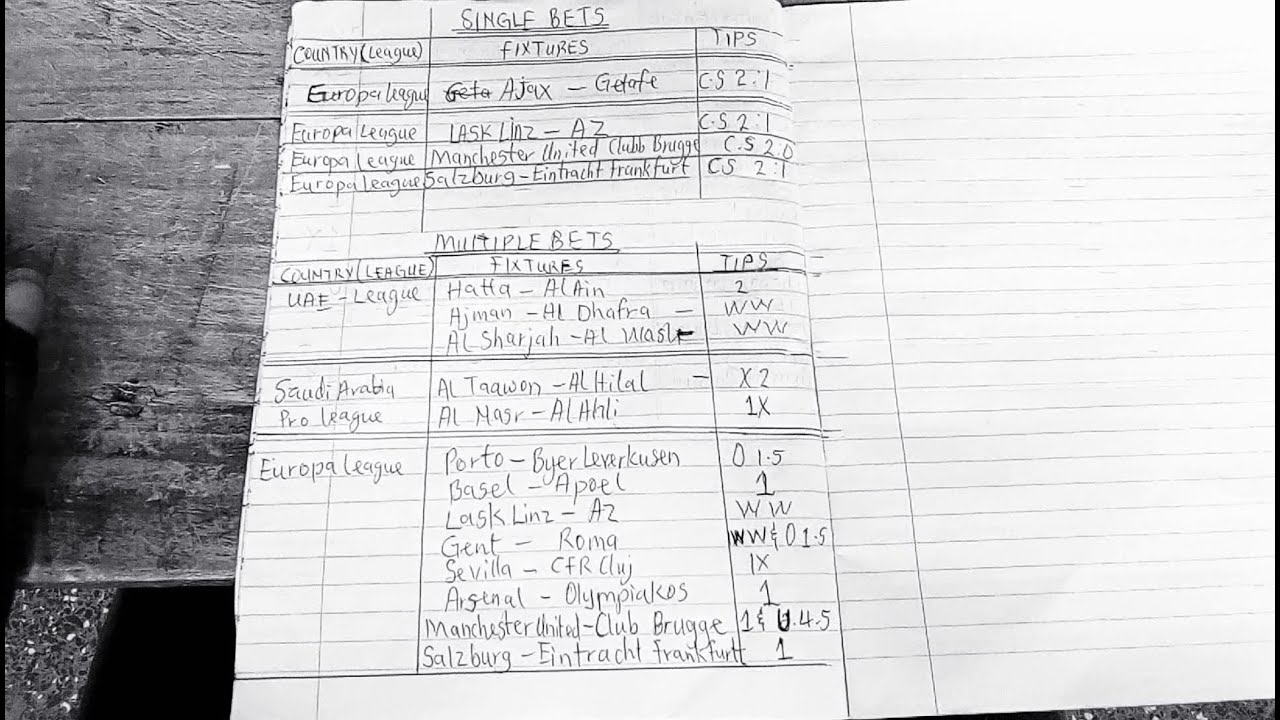 SINGLE BETS
COUNTRY(League) FIXTURES TIPS
Europa league Geta Ajax - Getafe C.S 2:1
Europa League LASK Linz - AZ C.S 2:1
Europa League Manchester United Clubb Brugge C.S 2:0
Europa league Salzburg - Eintracht frankfurt CS 2:1
MULTIPLE BETS
COUNTRY(LEAGUE) FIXTURES TIPS
UAE - League Hatta - Al Ain 2
Ajman - Al Dhafra - WW
Al Sharjah - Al Wasl - WW
Saudi Arabia Al Taawon - Al Hilal - X2
Pro league Al Nasr - Al Ahli 1X
Europa league Porto - Byer Leverkusen O 1.5
Basel - Apoel 1
Lask Linz - AZ WW
Gent - Roma WW & O 1.5
Sevilla - CFR Cluj 1X
Arsenal - Olympiakos 1
Manchester United - Club Brugge 1 & U.4.5
Salzburg - Eintracht frankfurtt 1